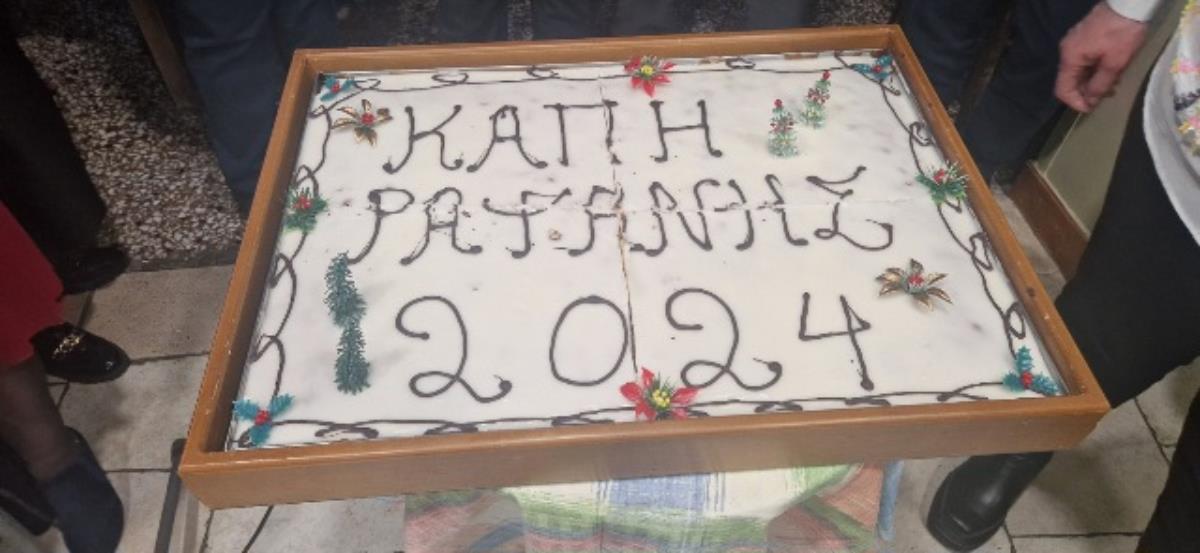 ΚΑΠΗ
ΡΑΤΑΝΗΣ
2024